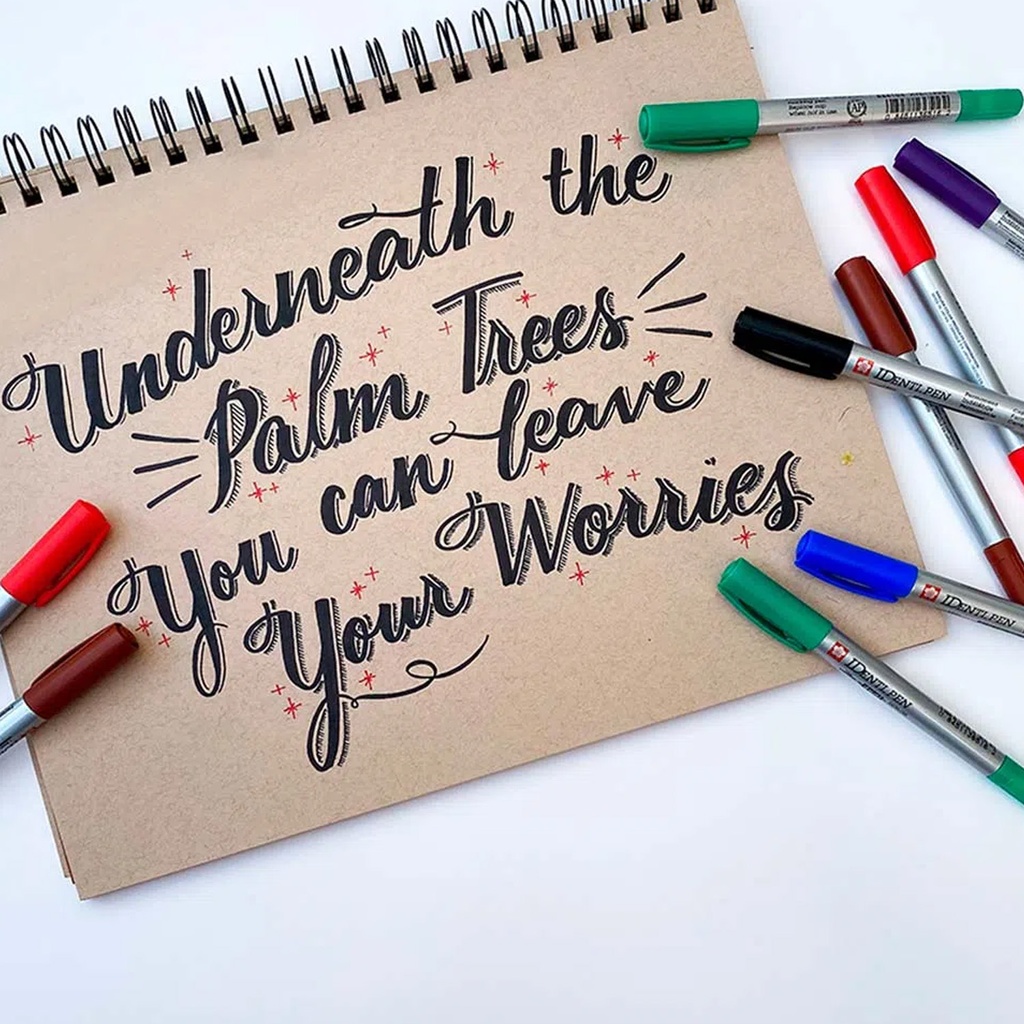 Underneath the
Palm Trees
You can leave
Your Worries
IDENTI. PEN
IDENTI. PEN
IDENTI. PEN